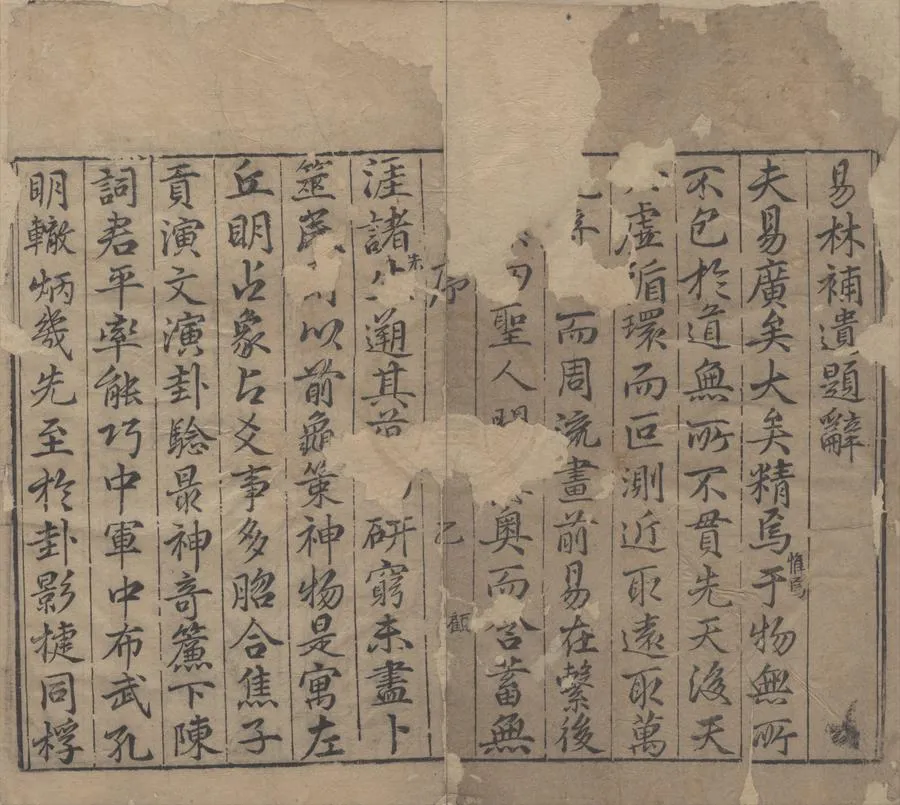 易林補遺題辭
夫易廣矣大矣精焉惟焉于物無所
不包於道無所不貫先天後天
虛循環而叵測近取遠取萬
而周流畫前易在繫後
聖人 奧而含蓄無
序
顧
涯諸 遡其 研窮未盡卜
筮 以前龜策神物是寓左
丘明占象占爻事多脗合焦子
貢演文演卦驗最神奇簾下陳
詞君平率能巧中軍中布武孔
明轍炳幾先至於卦影捷同桴